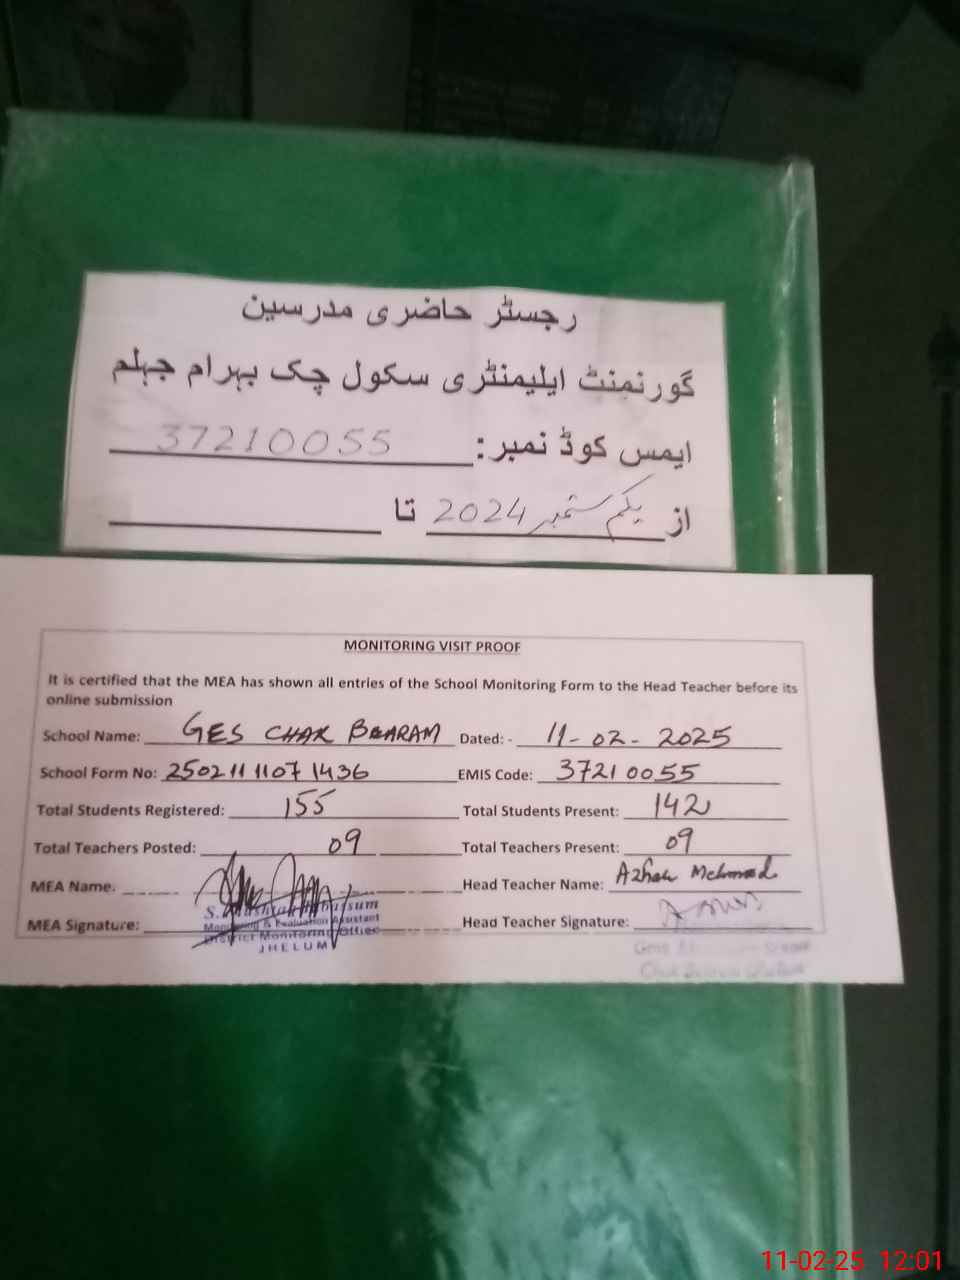 رجسٹر حاضری مدرسین
گورنمنٹ ایلیمنٹری سکول چک بہرام جہلم
ایمس کوڈ نمبر: 37210055
از یکم ستمبر 2024 تا
MONITORING VISIT PROOF
It is certified that the MEA has shown all entries of the School Monitoring Form to the Head Teacher before its
online submission
School Name: GES CHAK BEARAM Dated: - 11-02-2025
School Form No: 2502111071436 EMIS Code: 37210055
Total Students Registered: 155 Total Students Present: 142
Total Teachers Posted: 09 Total Teachers Present: 09
MEA Name. Head Teacher Name: Azhar Mehmood
MEA Signature: Head Teacher Signature:
Monitoring & Evaluation Assistant
District Monitoring Office
JHELUM
11-02-25 12:01